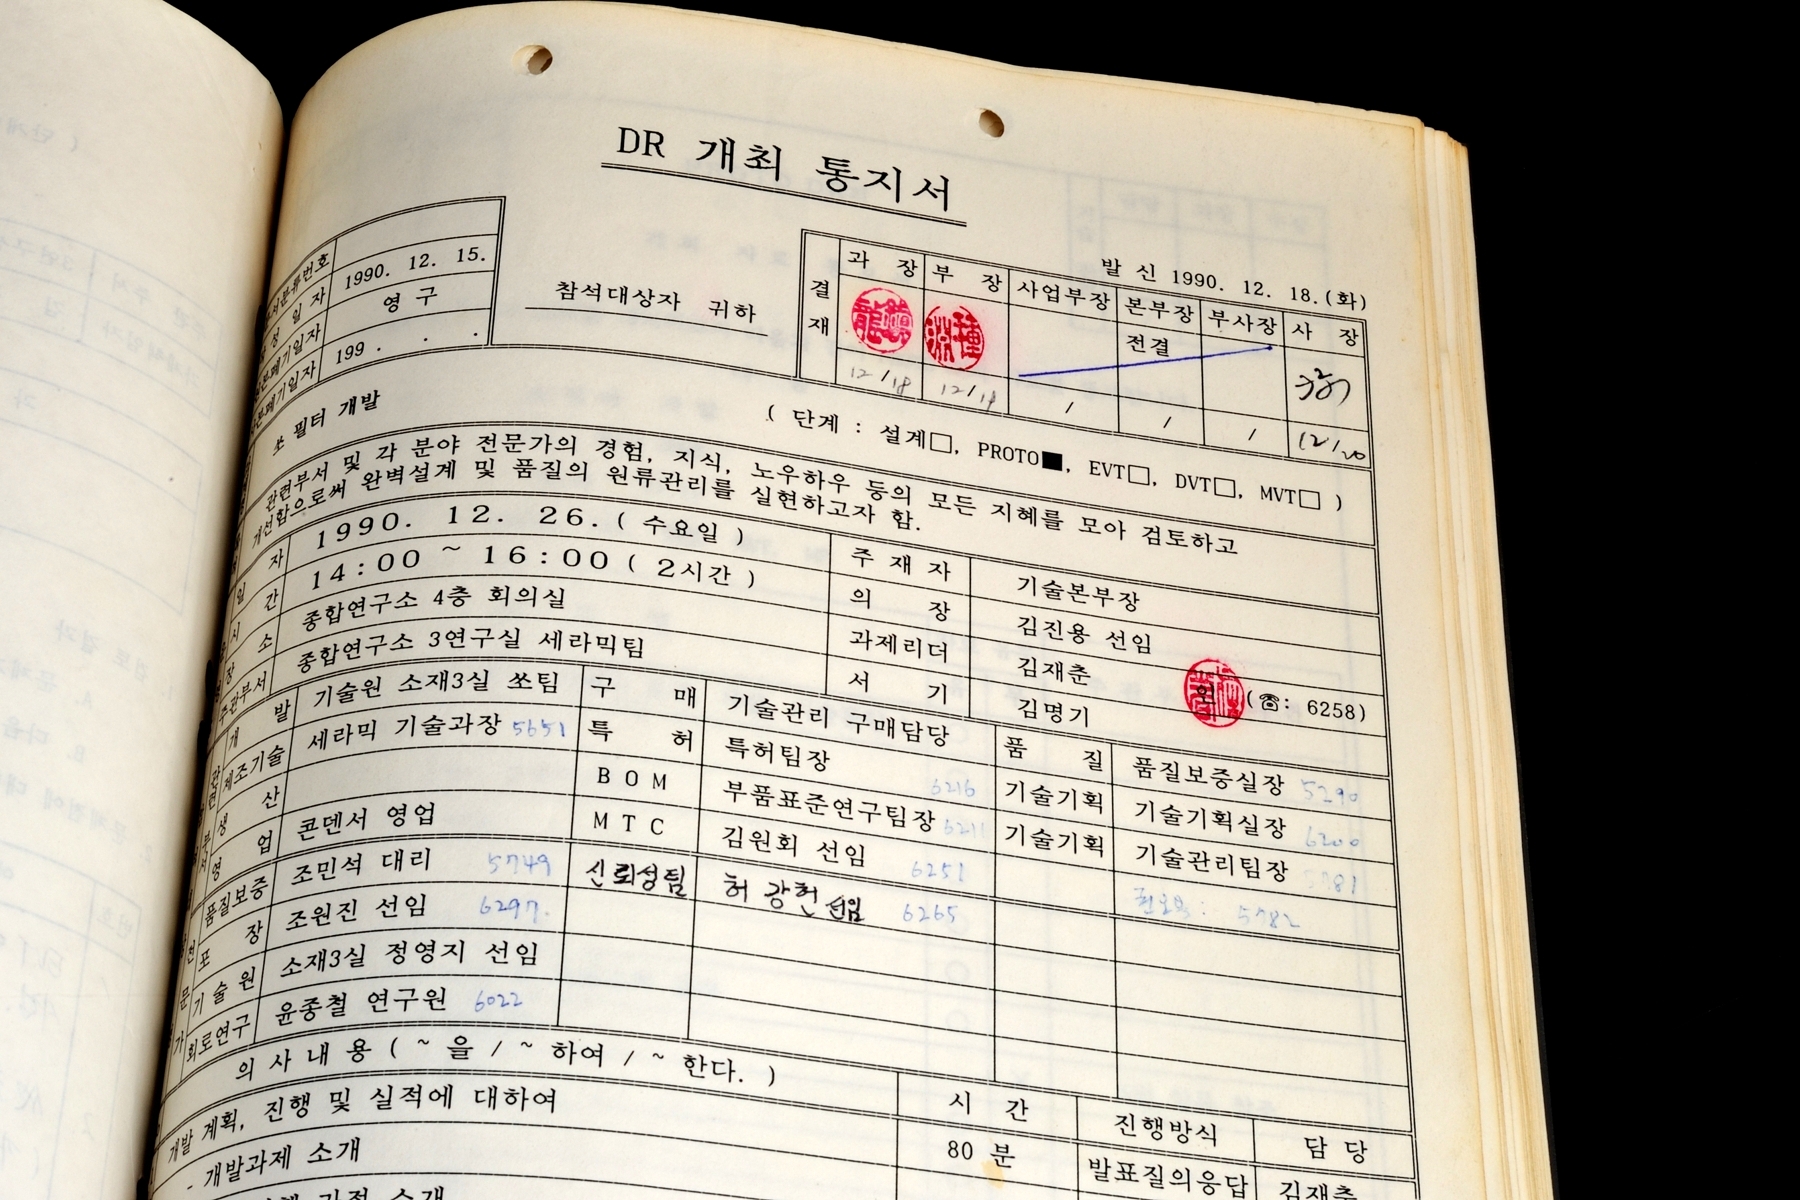 DR 개최 통지서
발 신 1990. 12. 18.(화)
분류번호
1990. 12. 15.
영 구
폐기일자 199 . . .
참석대상자 귀하
결 재 과 장 부 장 사업부장 본부장 부사장 사 장
전결
12/18 12/19 / / / 12/20
쏘 필터 개발
( 단계 : 설계□, PROTO■, EVT□, DVT□, MVT□ )
관련부서 및 각 분야 전문가의 경험, 지식, 노우하우 등의 모든 지혜를 모아 검토하고
개선함으로써 완벽설계 및 품질의 원류관리를 실현하고자 함.
일 자 1990. 12. 26.( 수요일 ) 주 재 자 기술본부장
시 간 14:00 ~ 16:00 ( 2시간 ) 의 장 김진용 선임
장 소 종합연구소 4층 회의실 과제리더 김재춘
주관부서 종합연구소 3연구실 세라믹팀 서 기 김명기 인 (☎: 6258)
개 발 기술원 소재3실 쏘팀 구 매 기술관리 구매담당 품 질 품질보증실장 5290
제조기술 세라믹 기술과장 5651 특 허 특허팀장 6216 기술기획 기술기획실장 6200
생 산 BOM 부품표준연구팀장 6211 기술기획 기술관리팀장 5781
영 업 콘덴서 영업 MTC 김원회 선임 6251 5782
품질보증 조민석 대리 5749 신뢰성팀 허 광헌 선임 6265
포 장 조원진 선임 6297.
기 술 원 소재3실 정영지 선임
회로연구 윤종철 연구원 6022
의 사 내 용 ( ~ 을 / ~ 하여 / ~ 한다. ) 시 간 진행방식 담 당
개발 계획, 진행 및 실적에 대하여 80 분 발표질의응답 김재춘
- 개발과제 소개